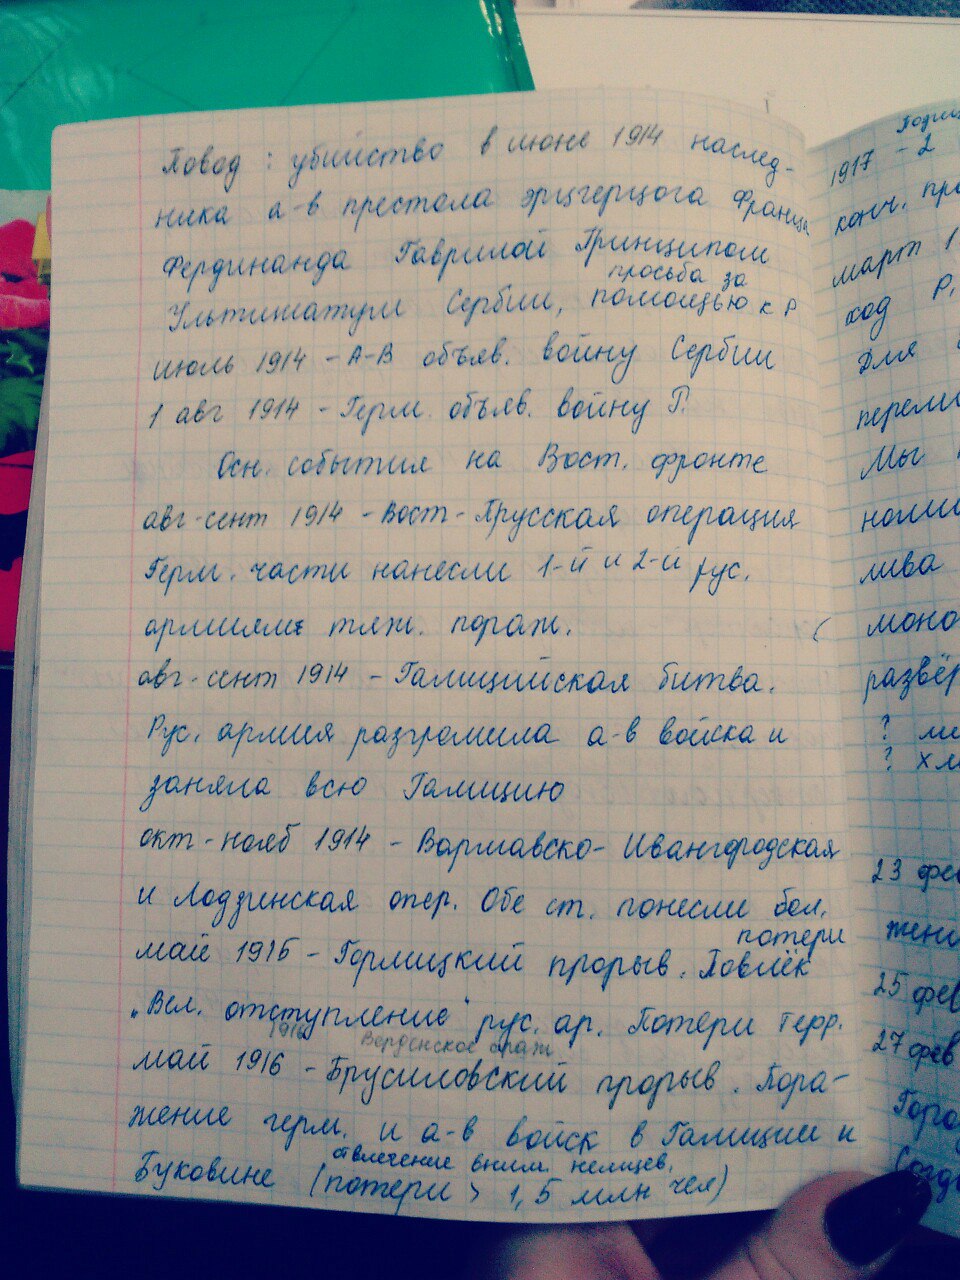 Повод: убийство в июне 1914 наслед-
ника а-в престола эрцгерцога Франца
Фердинанда Гаврилой Принципом
просьба за
Ультиматум Сербии, помощью к Р
июль 1914 - А-В объяв. войну Сербии
1 авг 1914 - Герм. объяв. войну Р.
Осн. события на Вост. фронте
авг-сент 1914 - Вост-Прусская операция
Герм. части нанесли 1-й и 2-й рус.
армиям тяж. пораж.
авг-сент 1914 - Галицийская битва.
Рус. армия разгромила а-в войска и
заняла всю Галицию
окт-нояб 1914 - Варшавско-Ивангородская
и Лодзинская опер. Обе ст. понесли бол.
потери
май 1915 - Горлицкий прорыв. Повлёк
"Вел. отступление" рус. ар. Потери терр.
1916 Верденское сраж
май 1916 - Брусиловский прорыв. Пора-
жение герм. и а-в войск в Галиции и
отвлечение вним. немцев,
Буковине (потери > 1,5 млн чел)
1917 - 2
конч. пр
март 1
ход Р.
Для
переми
Мы
лива
моно
развёр
? ми
? хл
23 фев
жени
25 фев
27 фев
Горо